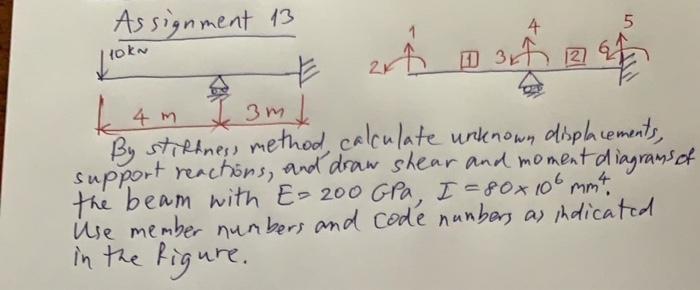 Assignment 13
10kN
4 m
3m
1
2
1
3
4
2
5
6
By stiffness method, calculate unknown displacements,
support reactions, and draw shear and moment diagrams of
the beam with E= 200 GPa, I = 80x10⁶ mm⁴.
Use member numbers and code numbers as indicated
in the figure.